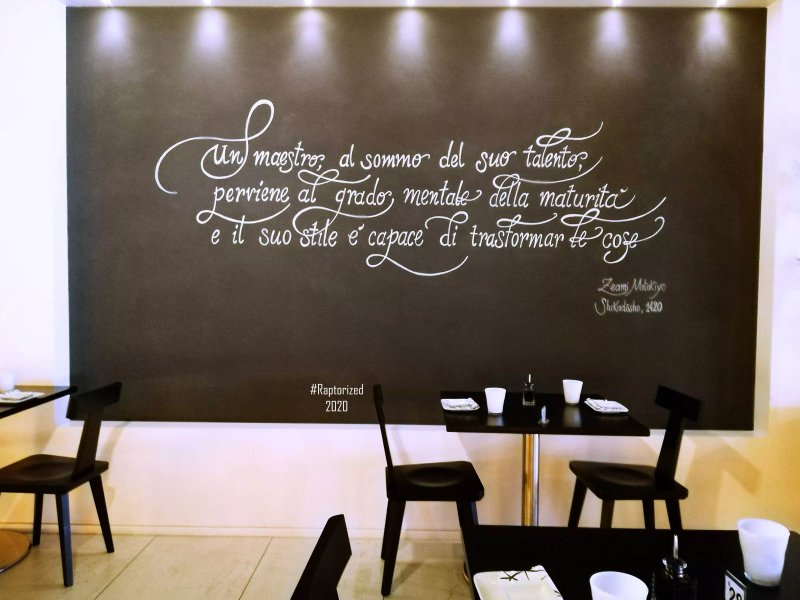 Un maestro, al sommo del suo talento,
perviene al grado mentale della maturità
e il suo stile é capace di trasformar le cose
Zeami Motokiyo
Shikadosho, 1420
#Raptorized
2020